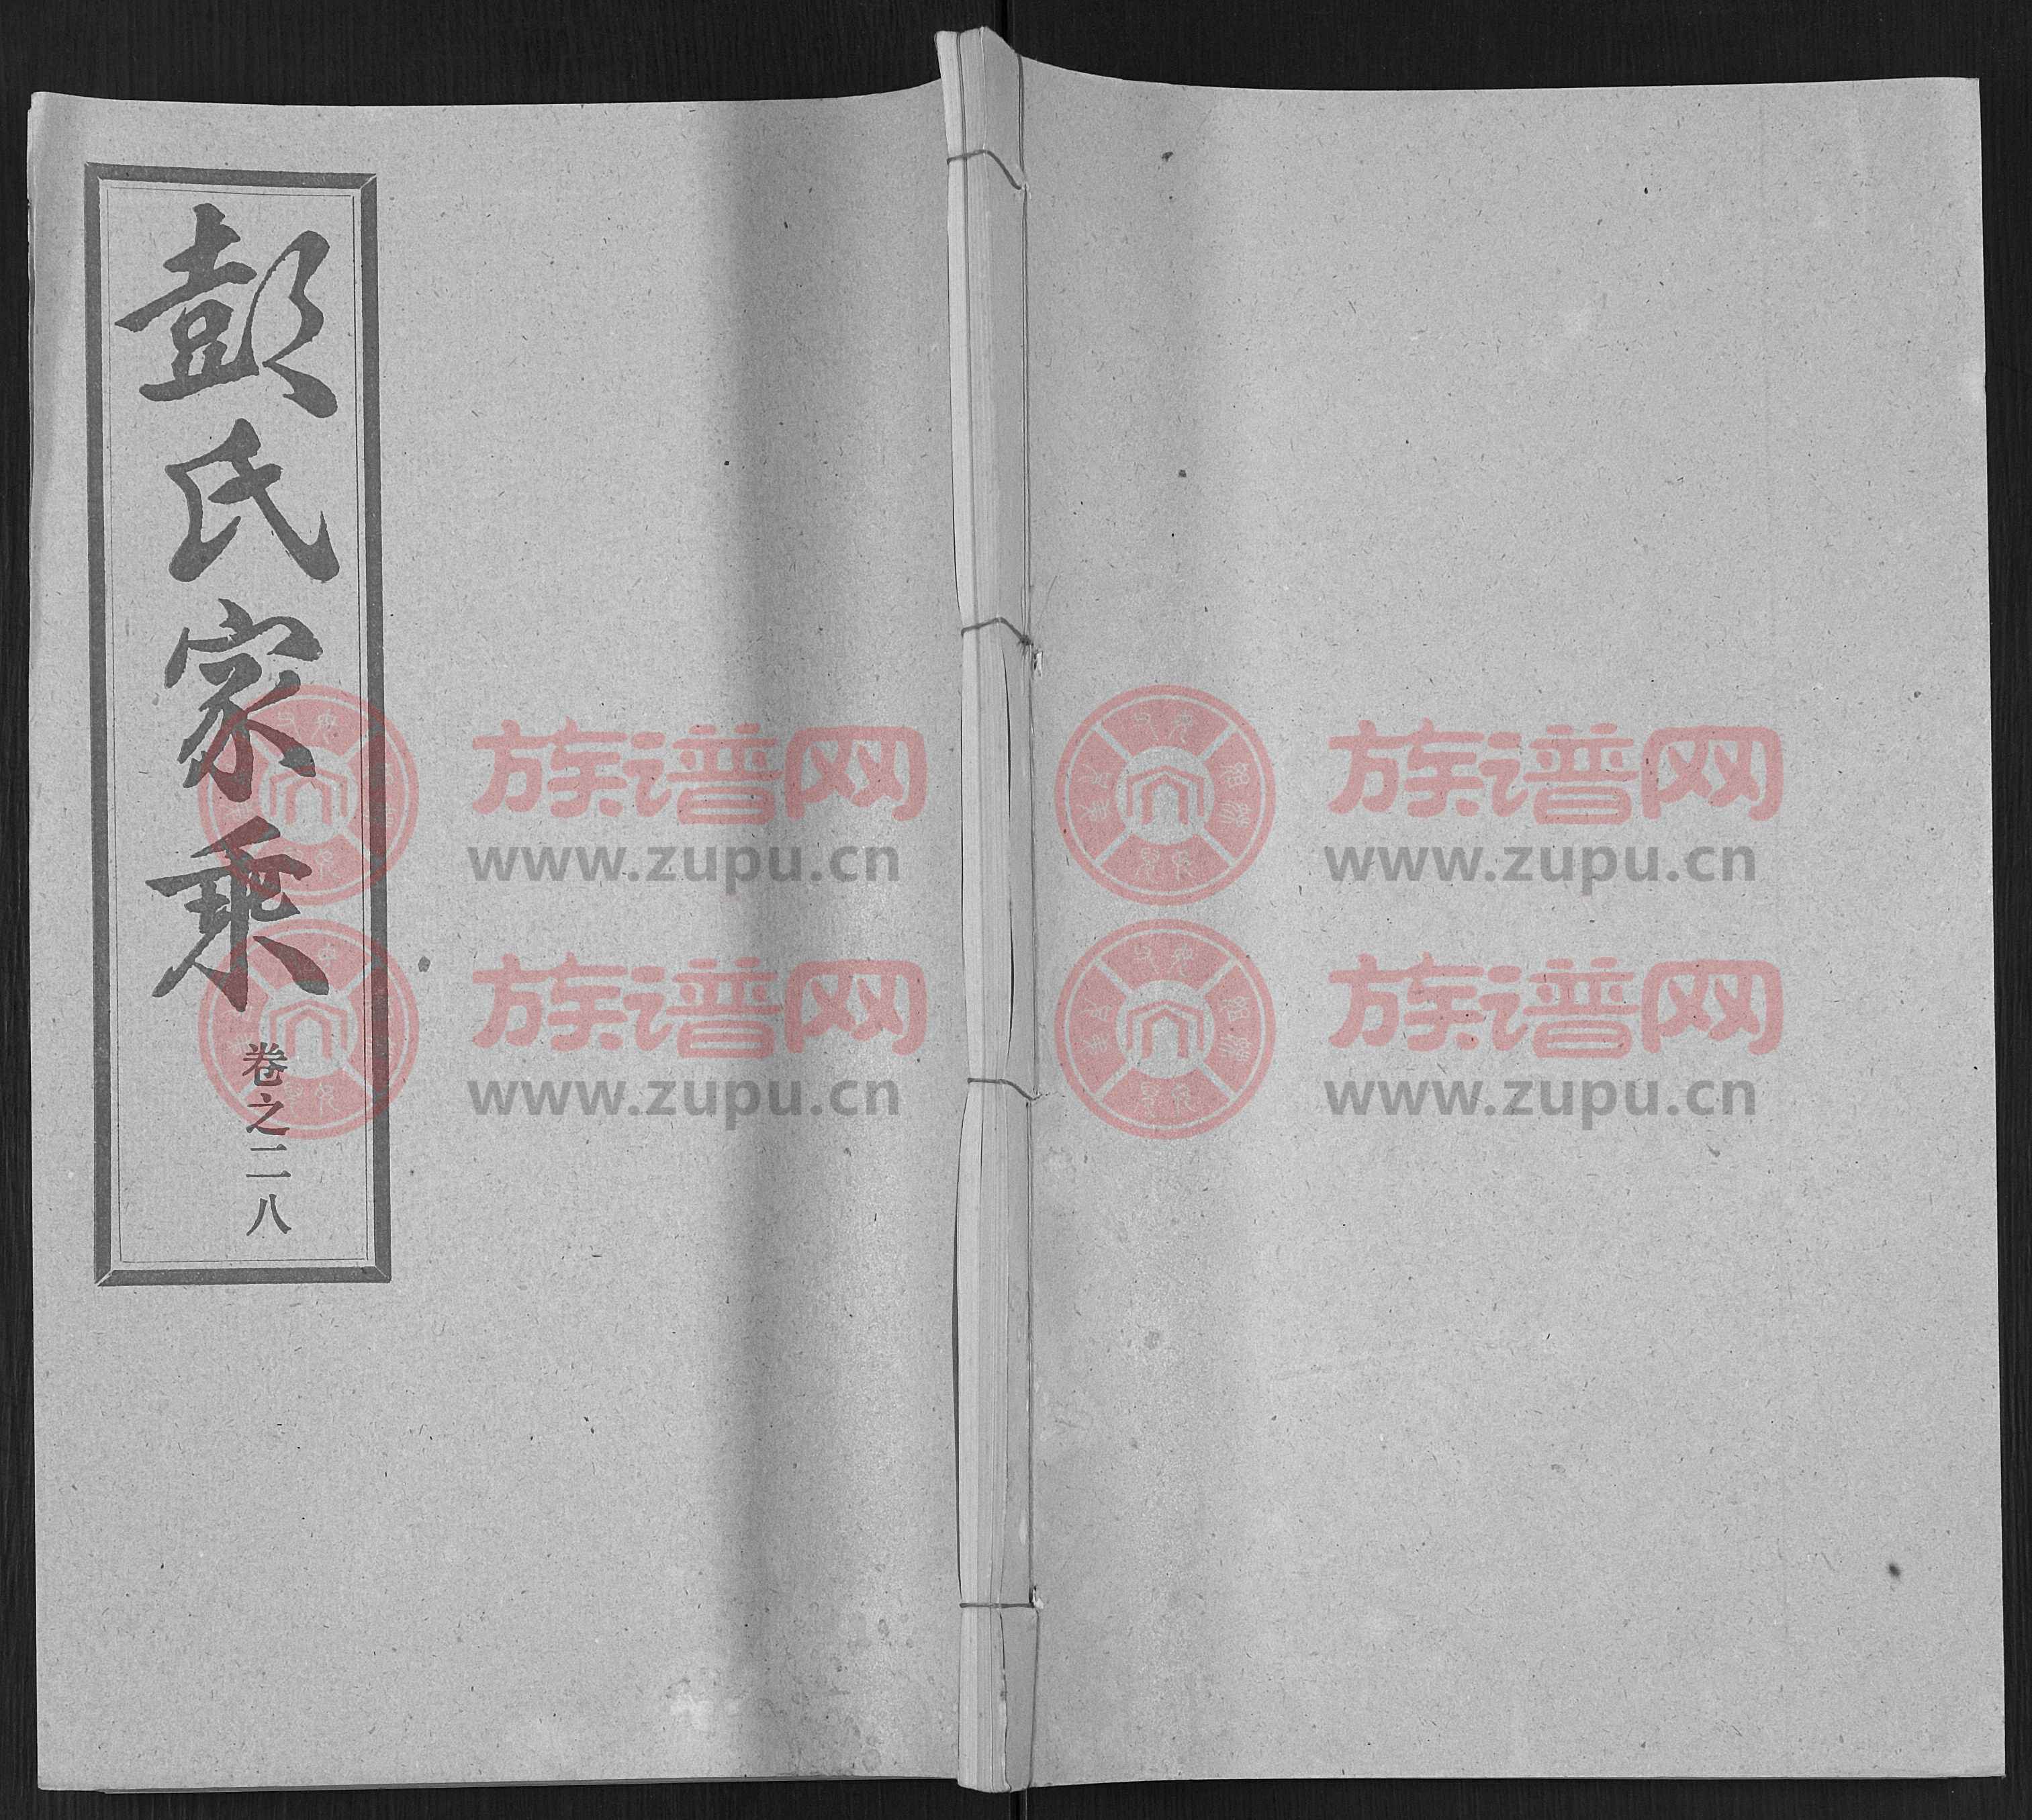 彭氏家乘
卷之二八
族谱网
www.zupu.cn
族谱网
www.zupu.cn
族谱网
www.zupu.cn
族谱网
www.zupu.cn